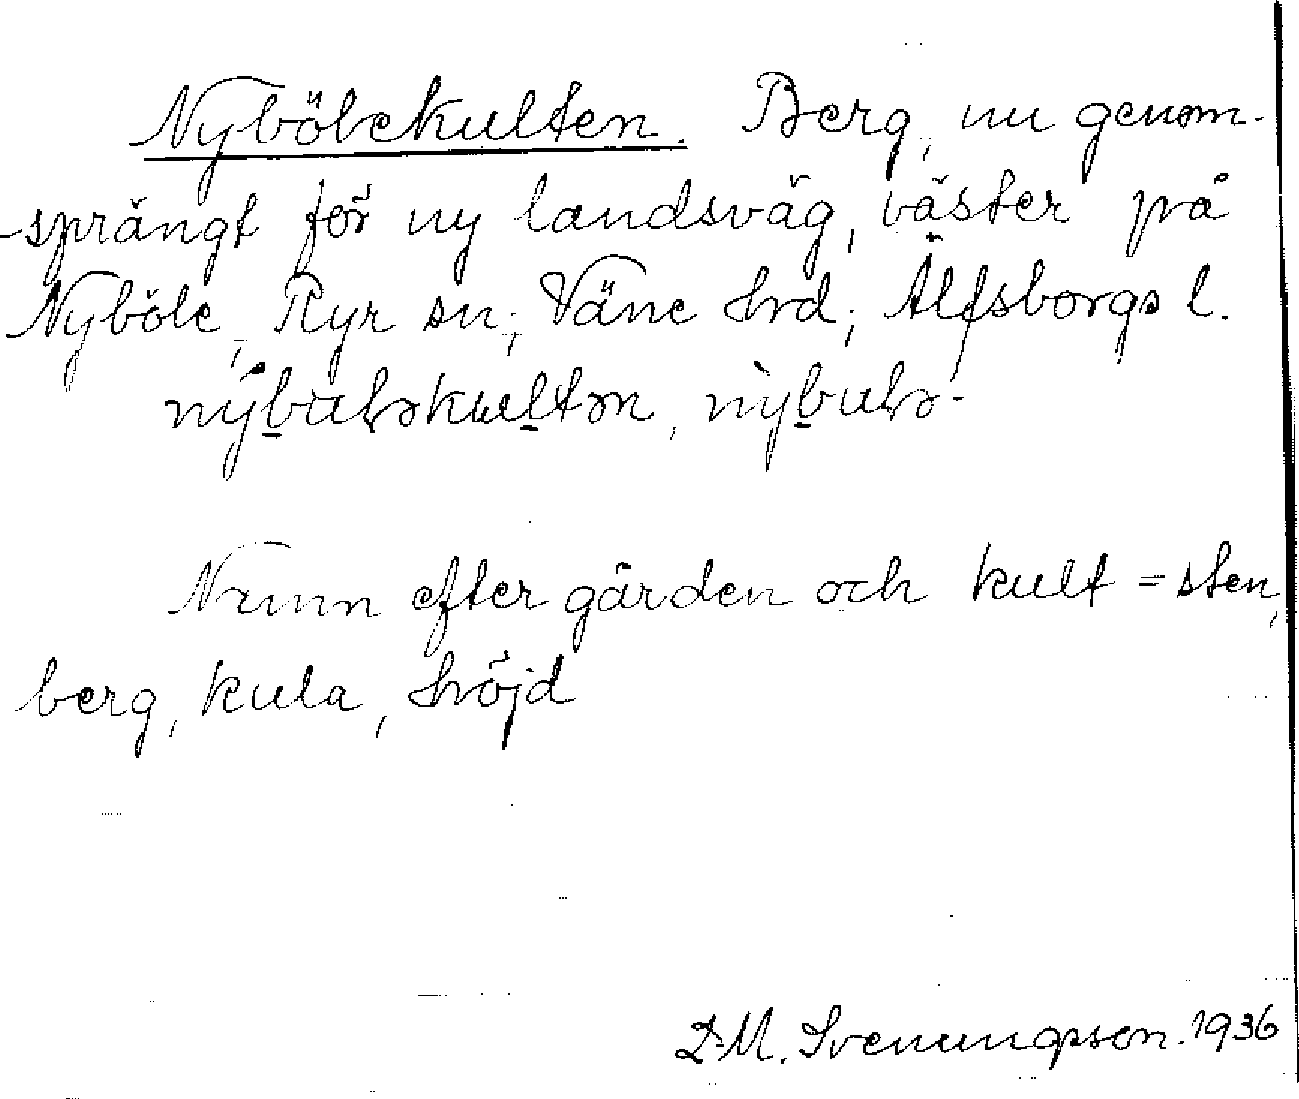 Nybölekulten. Berg, nu genom-
-sprängt för ny landsväg, väster på
Nyböle, Ryr sn; Väne hrd; Älfsborgs l.
Namn efter gården och kult = sten,
berg, kula, höjd
D.M. Svenungsson. 1936